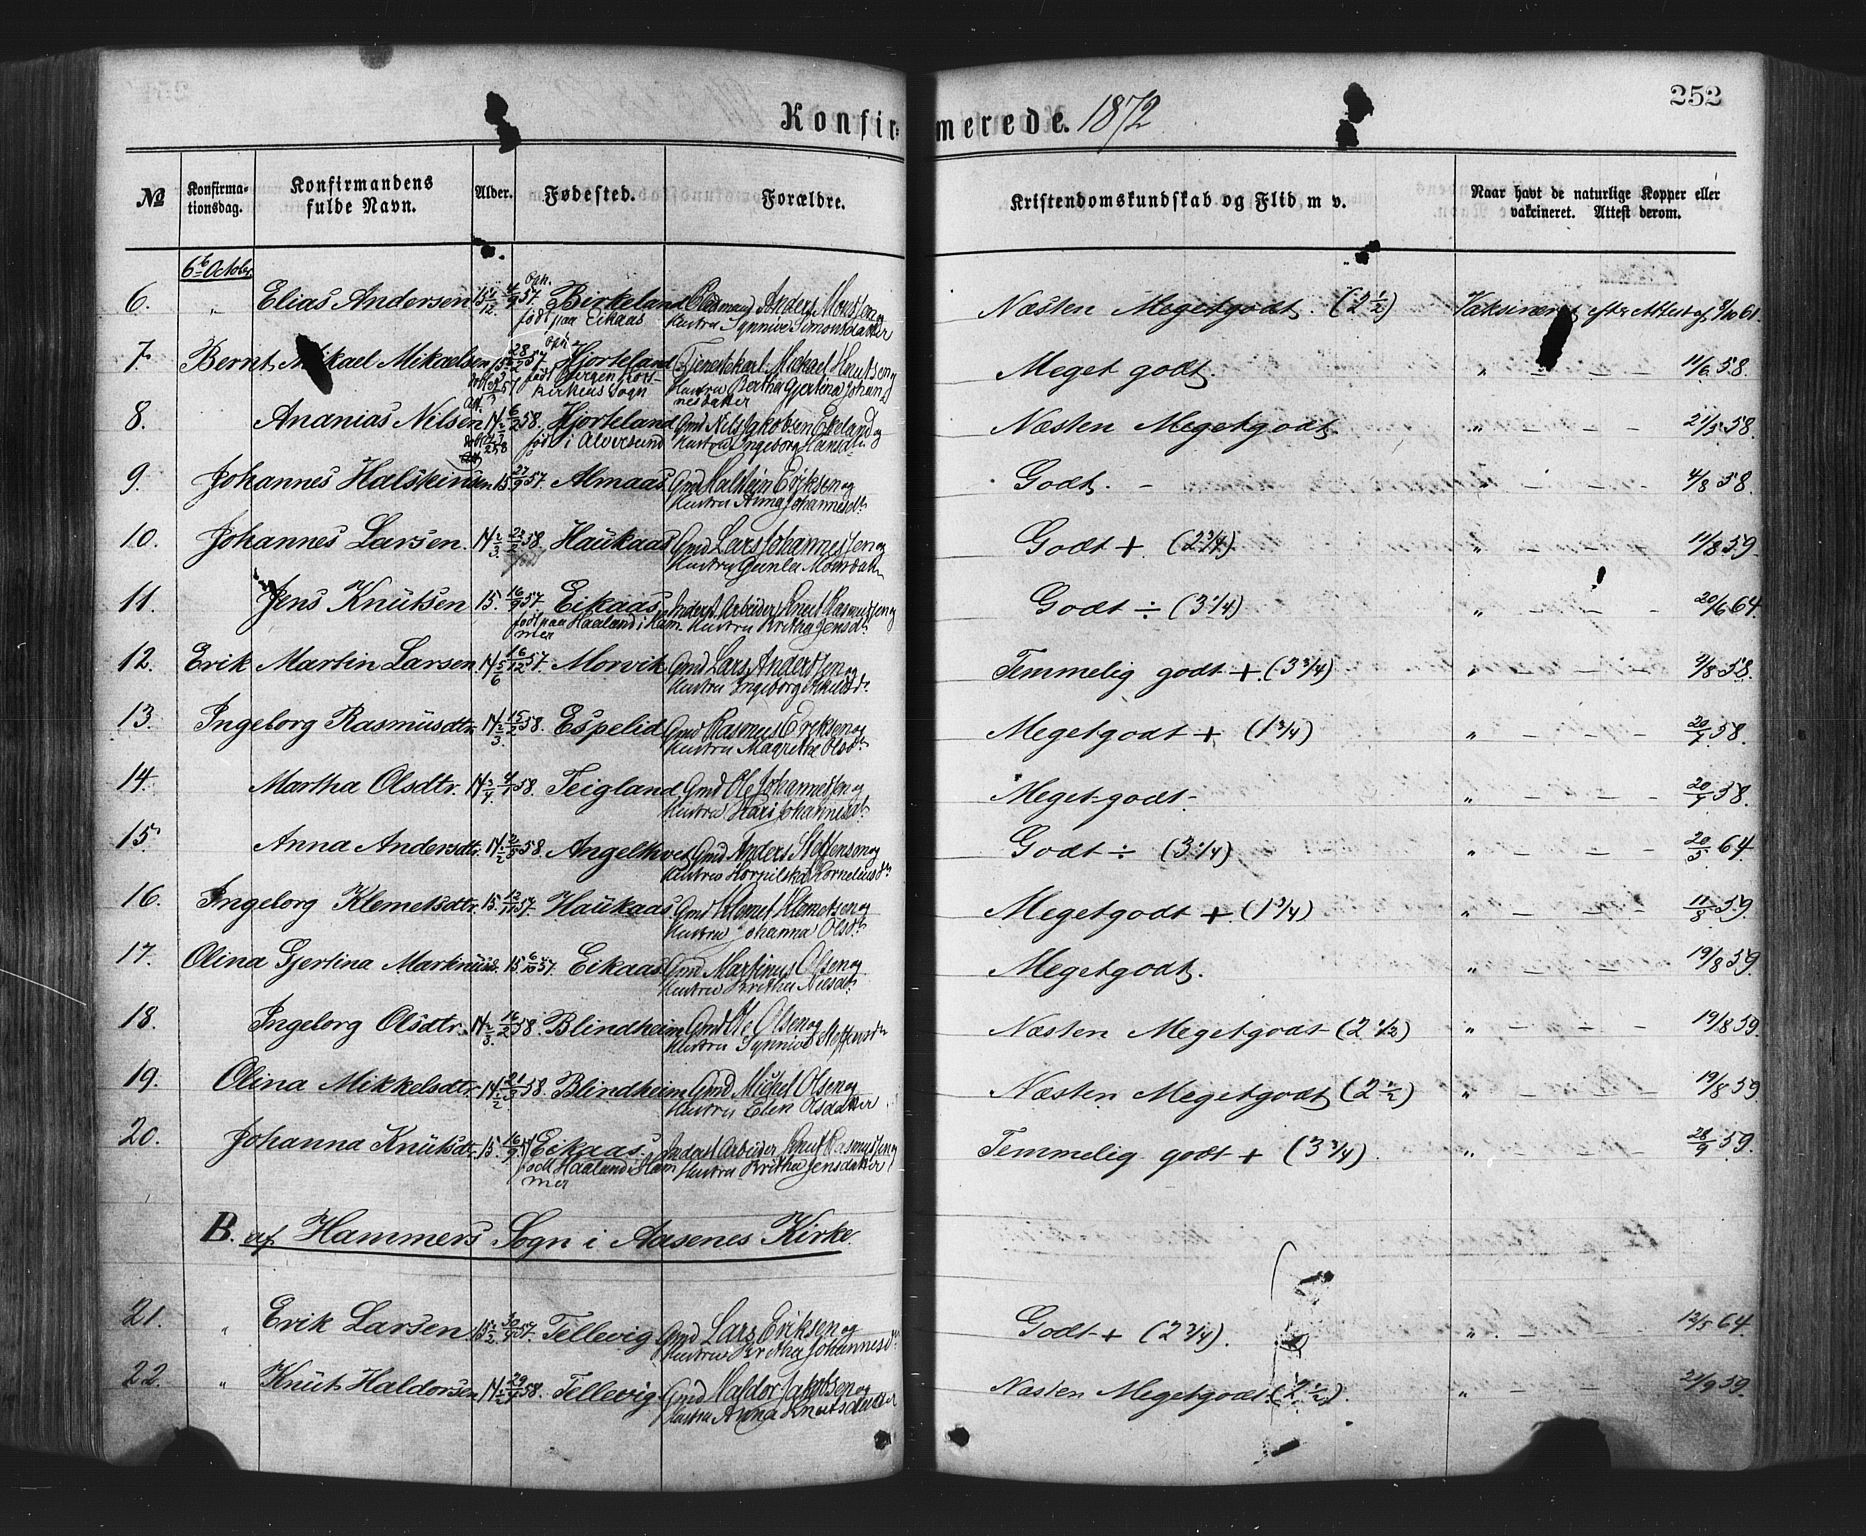 252
Konfirmerede. 1872
№ Konfirmationsdag. Konfirmandens fulde Navn. Alder. Fødested. Forældre. Kristendomskundskab og Flid m v. Naar havt de naturlige Kopper eller vakcineret. Attest derom.
6te October
6. " Elias Andersen Birkeland født paa Eikaas Anders Monsen og Hustru Synnive Simonsdatter Næsten Megetgodt. (2 1/2) Vaksineret efter Attest af 8/10 61.
7. Bernt Mikael Mikaelsen 28/2 57. Hjorteland født i Bergen Korskirkens Sogn Tjenestekarl Mickael Knutsen og Hustru Bertha Gjertina Johannesdatter Meget godt. " 11/6 58.
8. Ananias Nilsen 6/2 58. Hjorteland født i Alversund Gmd Nils Jakobsen Ekeland og Hustru Ingeborg Hansdtr Næsten Megetgodt. " 21/5 58.
9. Johannes Halsteinsen 15 27/9 57. Almaas Gmd Halstein Eriksen og Hustru Anna Johannesdtr Godt. " 4/8 58.
10. Johannes Larsen. 14 2/3 22/2 58. Haukaas Gmd Lars Johannessen og Hustru Gunla Monsdatter Godt + (2 3/4) " 11/8 59
11. Jens Knutsen 15. 16/9 57. Eikaas født paa Haaland i Hammer Inderst Arbeider Knut Rasmussen og Hustru Britha Jensdtr Godt ÷ (3 1/4) " 20/6 64.
12. Erik Martin Larsen. 14 5/6 16/12 57. Morvik Gmd Lars Andersen og Hustru Ingeborg Nilsdtr Temmelig godt + (3 3/4) " 9/8 58.
13. Ingeborg Rasmusdtr. 14 2/3. 15/2 58. Espelid Gmd Rasmus Eriksen og Hustru Magrethe Olsdtr Megetgodt + (1 3/4) " 20/7 58.
14. Martha Olsdtr. 14 3/4 58. Teigland Gmd Ole Johannessen og Hustru Kari Johannesdtr Meget-godt- " 58.
15. Anna Andersdtr. 14 1/2 58. Angeltveit Gmd Anders Steffensen og Hustru Korneliusdtr Godt ÷ (3 1/4) " 20/5 64.
16. Ingeborg Klemetsdtr. 15. 57. Haukaas. Gmd Klemet Klemetsen og Hustru Johanna Olsdtr. Megetgodt + (1 3/4) " 11/8 59.
17. Olina Gjertina Martinusd. 15 6/10 57. Eikaas Gmd Martinus Olsen og Hustru Britha Nilsdtr Megetgodt. " 19/8 59.
18. Ingeborg Olsdtr. 14 2/3. 16/2 58. Blindheim Gmd Ole Olsen og Hustru Synnive Steffensdtr Næsten Megetgodt- (2 1/2) " 19/8 59.
19. Olina Mikkelsdtr. 14 1/2 21/3 58. Blindheim Gmd Mickel Olsen og Hustru Elen Olsdatter Næsten Megetgodt (2 1/2) " 19/8 59.
20. Johanna Knutsdtr. 15. 16/9 57. Eikaas. født Haaland i Hammer Inderst Arbeider Knut Rasmussen og Hustru Britha Jensdatter Temmelig godt + (3 3/4). " 28/9 59.
B. af Hammers Sogn i Aasenes Kirke.
21. " Erik Larsen 30/3 57. Tellevig Gmd Lars Eriksen og Hustru Britha Johannesdtr Godt + (2 3/4). " 12/5 64.
22. " Knut Haldorsen 14 1/2 29/4 58. Tellevig Gmd Haldor Jakobsen og Hustru Anna Knutsdatter Næsten Megetgodt. (2 1/2). " 21/9 59.